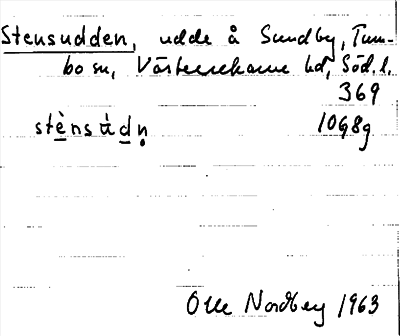 Stensudden, udde å Sundby, Tum-
bo sn, Västerrekarne hd, Söd. l.
369
stènsùdn̥ 10G8g
Olle Nordberg 1963